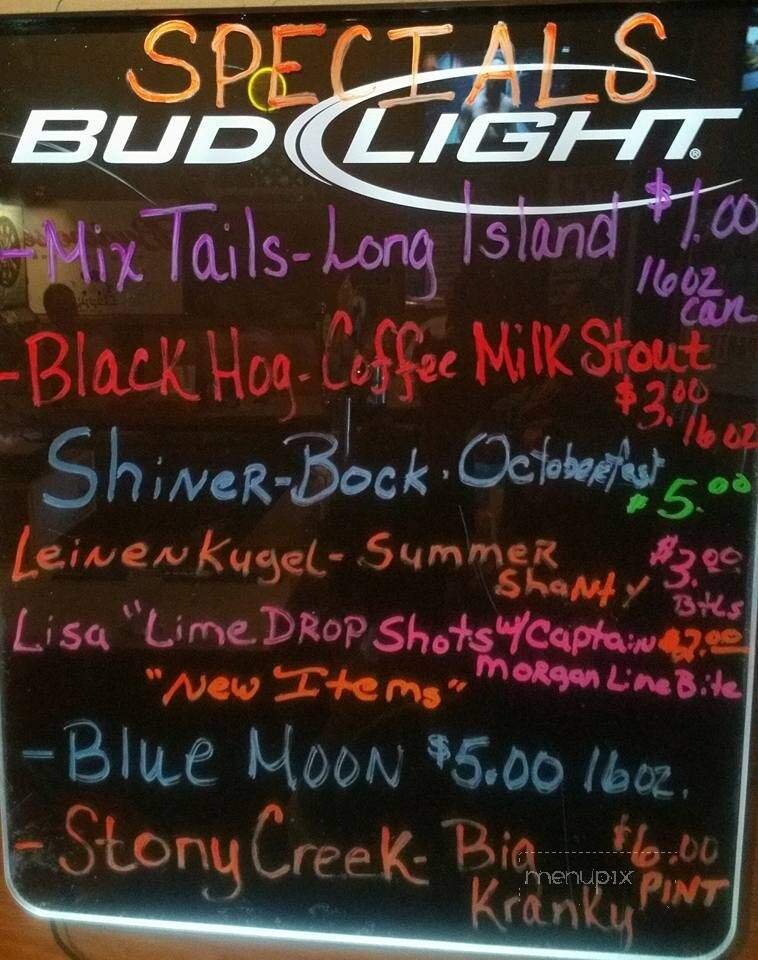 SPECIALS
BUD LIGHT®
-Mix Tails-Long Island $1.00
16oz
can
-Black Hog-Coffee Milk Stout
$3.00
16oz
Shiner-Bock. Octoberfest
$5.00
Leinenkugel-Summer $3.00
Shanty Btls
Lisa "Lime DROP Shots w/Captain $2.00
"New Items" Morgan Lime Bite
-Blue Moon $5.00 16oz.
-Stony Creek-Big $6.00
Kranky PINT
menupix